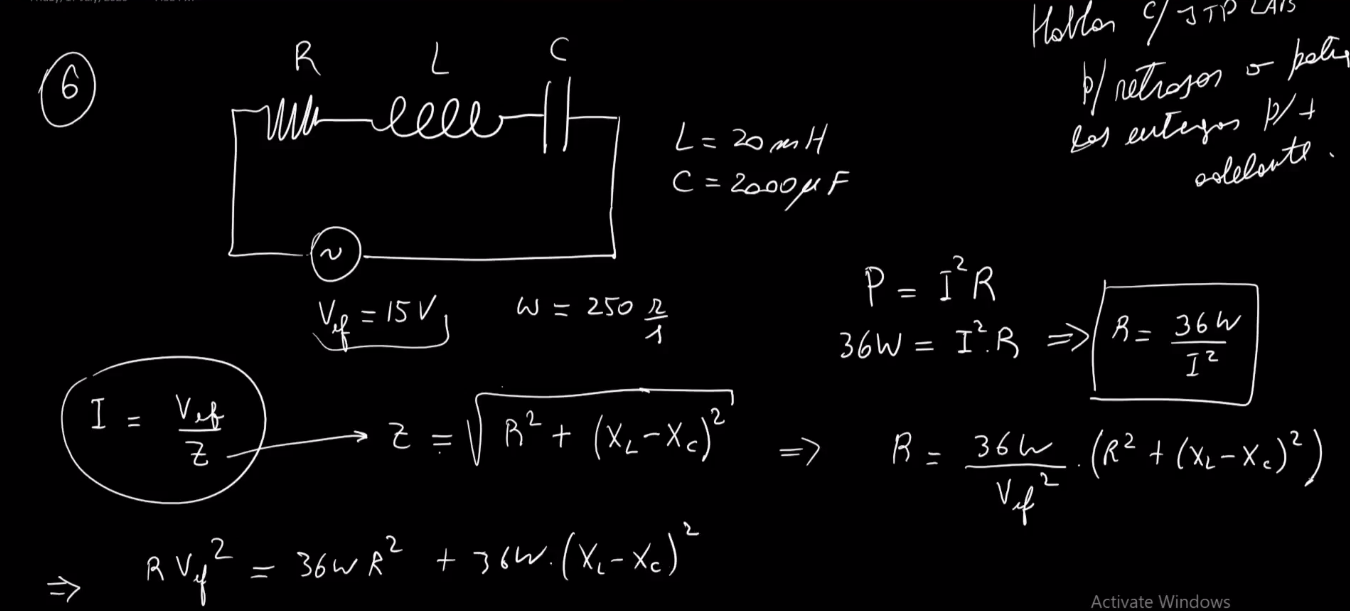 Hablar c/ JTP LABs
p/ retrasos o
las entregas p/ +
adelante.
6
R L C
L = 20 mH
C = 2000 μF
~
V_ef = 15 V ω = 250 r/s
P = I² R
36W = I².R ⇒ R = 36W / I²
I = V_ef / Z → Z = √(R² + (X_L - X_C)²) ⇒ R = 36W / V_ef² . (R² + (X_L - X_C)²)
⇒ R V_ef² = 36W R² + 36W.(X_L - X_C)²
Activate Windows